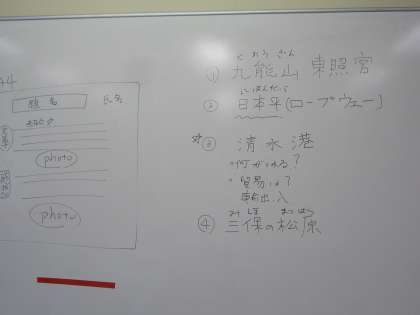 題名
氏名
photo
photo
① 九能山 東照宮
にほんだいら
② 日本平(ロープウェー)
③ 清水港
・何がとれる?
・貿易は?
輸出入
みほ まつばら
④ 三保の松原